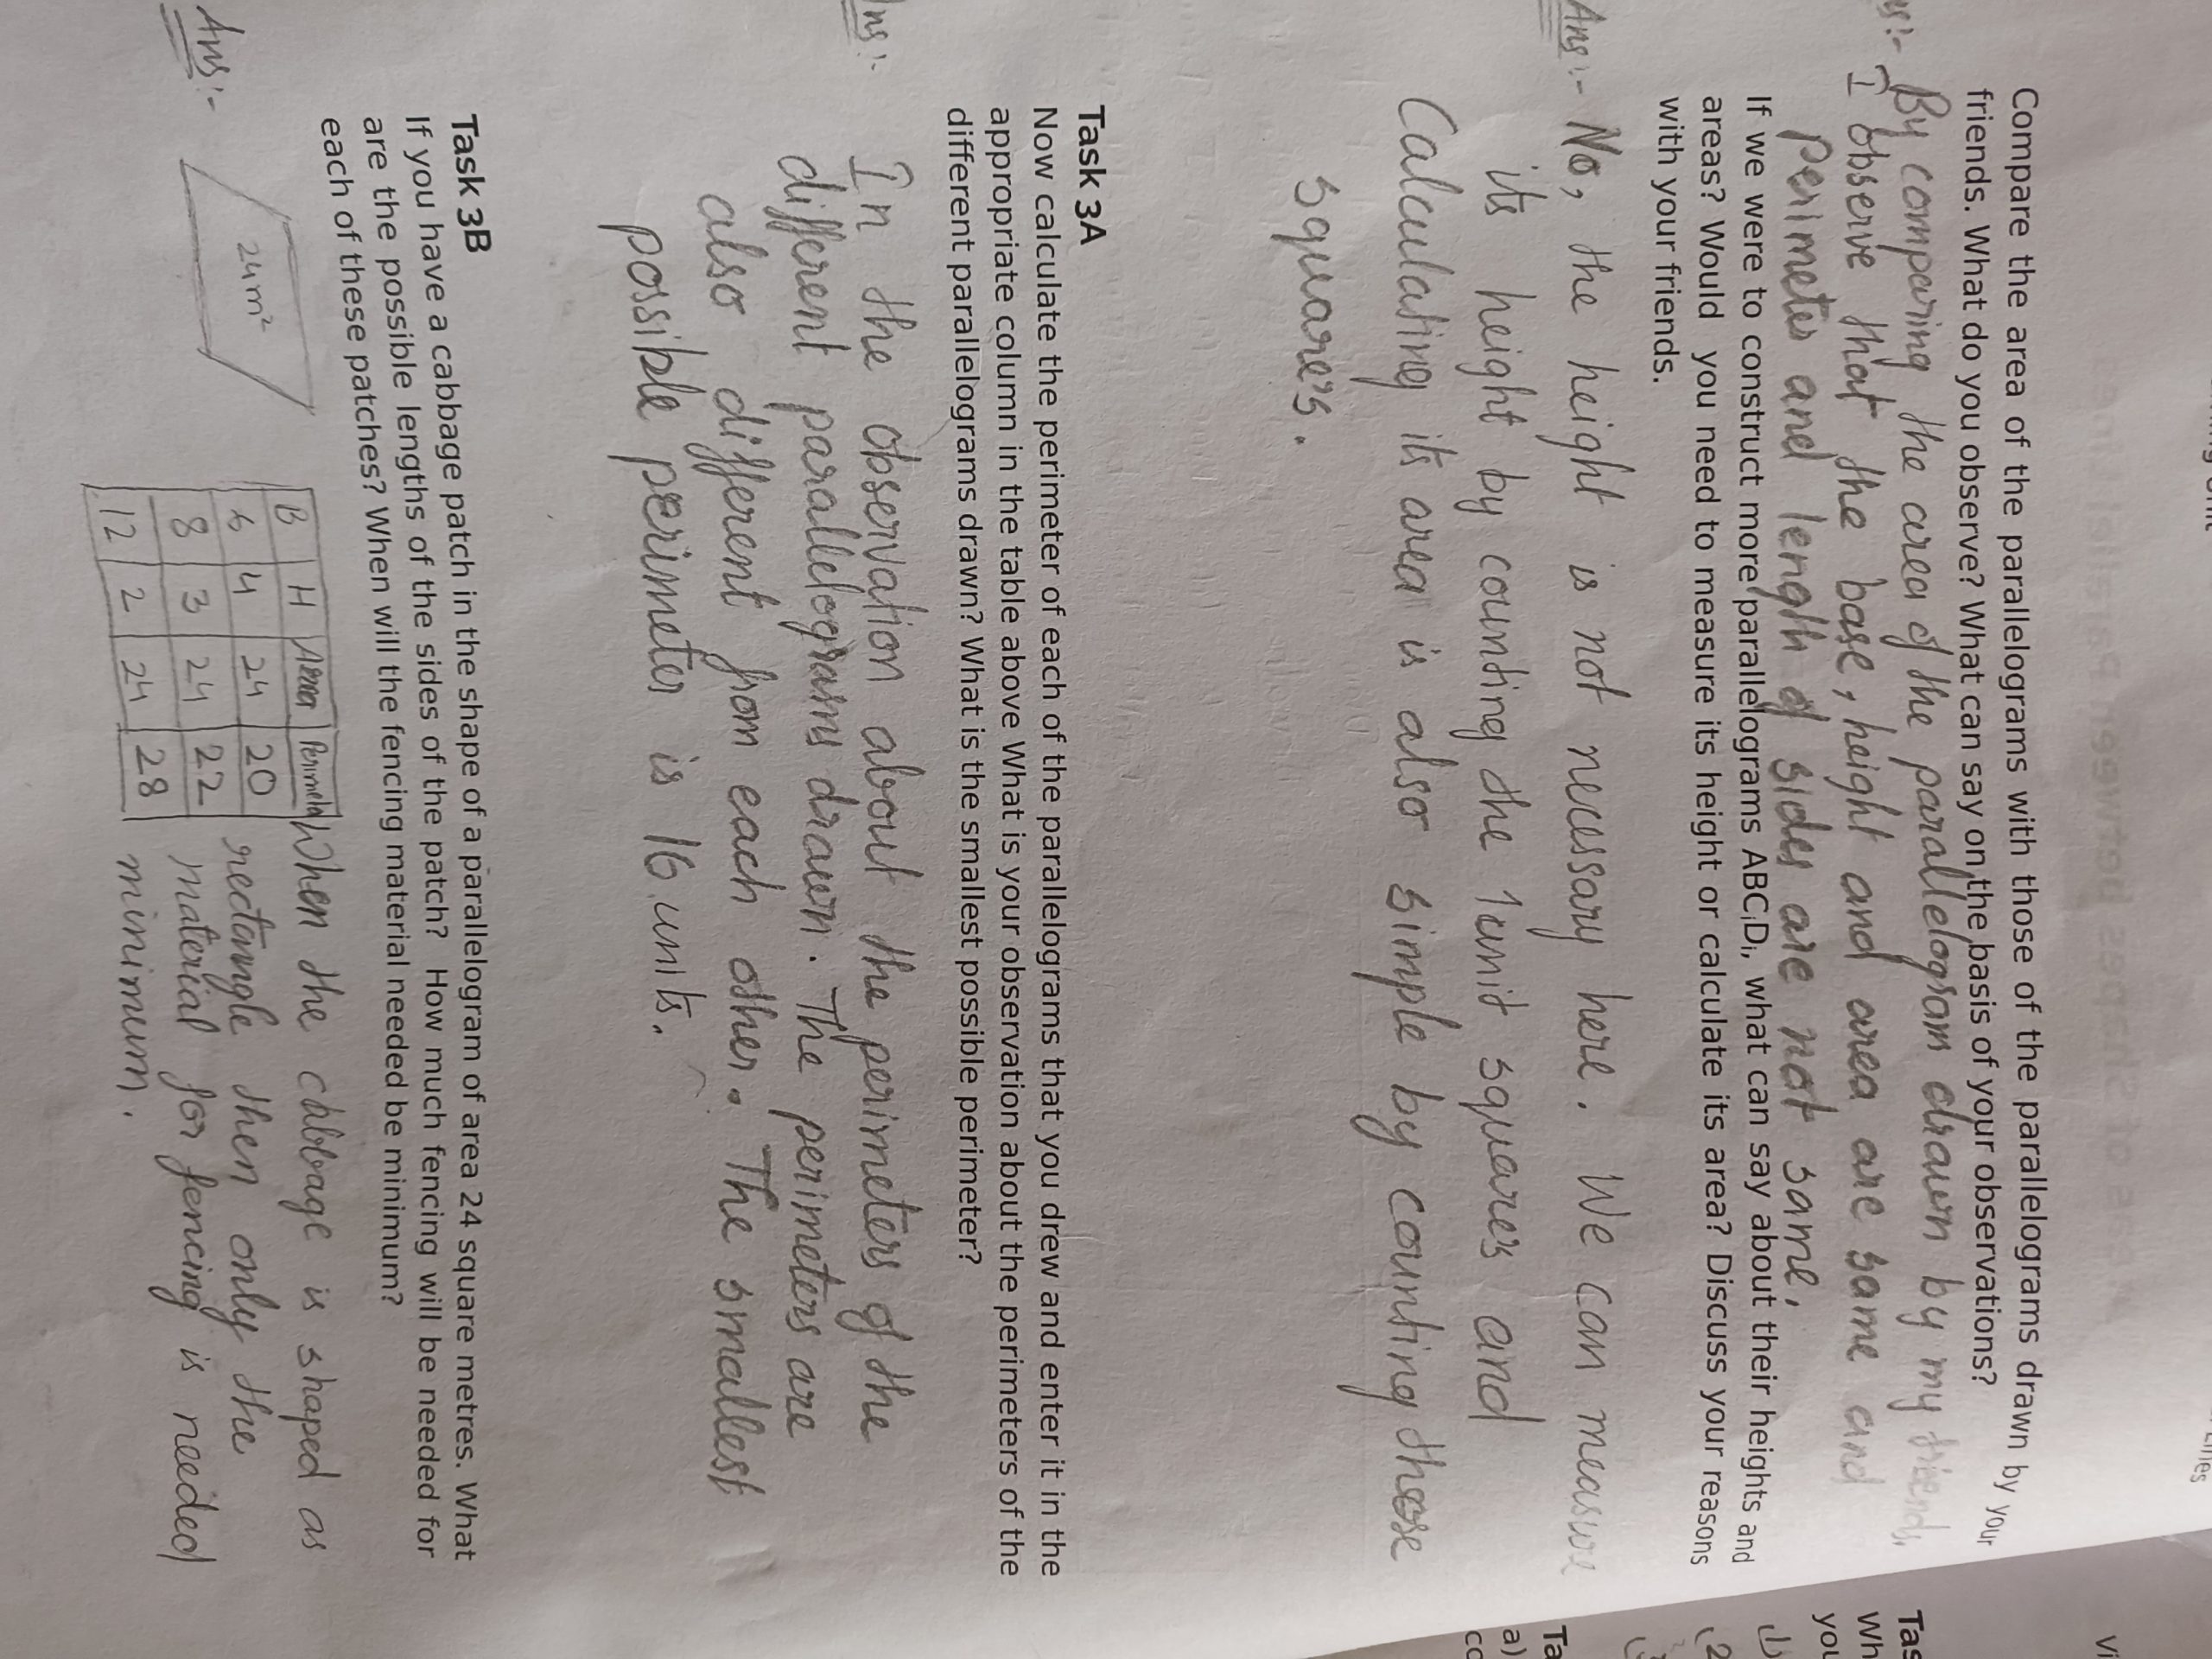 Compare the area of the parallelograms with those of the parallelograms drawn by your
friends. What do you observe? What can say on the basis of your observations?
ns:- By comparing the area of the parallelogram drawn by my friends,
I observe that the base, height and area are same and
perimeter and length of sides are not same.
If we were to construct more parallelograms ABCᵢDᵢ, what can say about their heights and
areas? Would you need to measure its height or calculate its area? Discuss your reasons
with your friends.
Ans:- No, the height is not necessary here. We can measure
its height by counting the 1unit squares and
Calculating its area is also simple by counting those
squares.
Task 3A
Now calculate the perimeter of each of the parallelograms that you drew and enter it in the
appropriate column in the table above What is your observation about the perimeters of the
different parallelograms drawn? What is the smallest possible perimeter?
ns:- In the observation about the perimeters of the
different parallelograms drawn. The perimeters are
also different from each other. The smallest
possible perimeter is 16 units.
Task 3B
If you have a cabbage patch in the shape of a parallelogram of area 24 square metres. What
are the possible lengths of the sides of the patch? How much fencing will be needed for
each of these patches? When will the fencing material needed be minimum?
Ans:-
24m²
B H Area Perimeter
6 4 24 20
8 3 24 22
12 2 24 28
When the cabbage is shaped as
rectangle then only the
material for fencing is needed
minimum.
Tas
Wh
you
(1)
(2
Ta
a)
co
vi